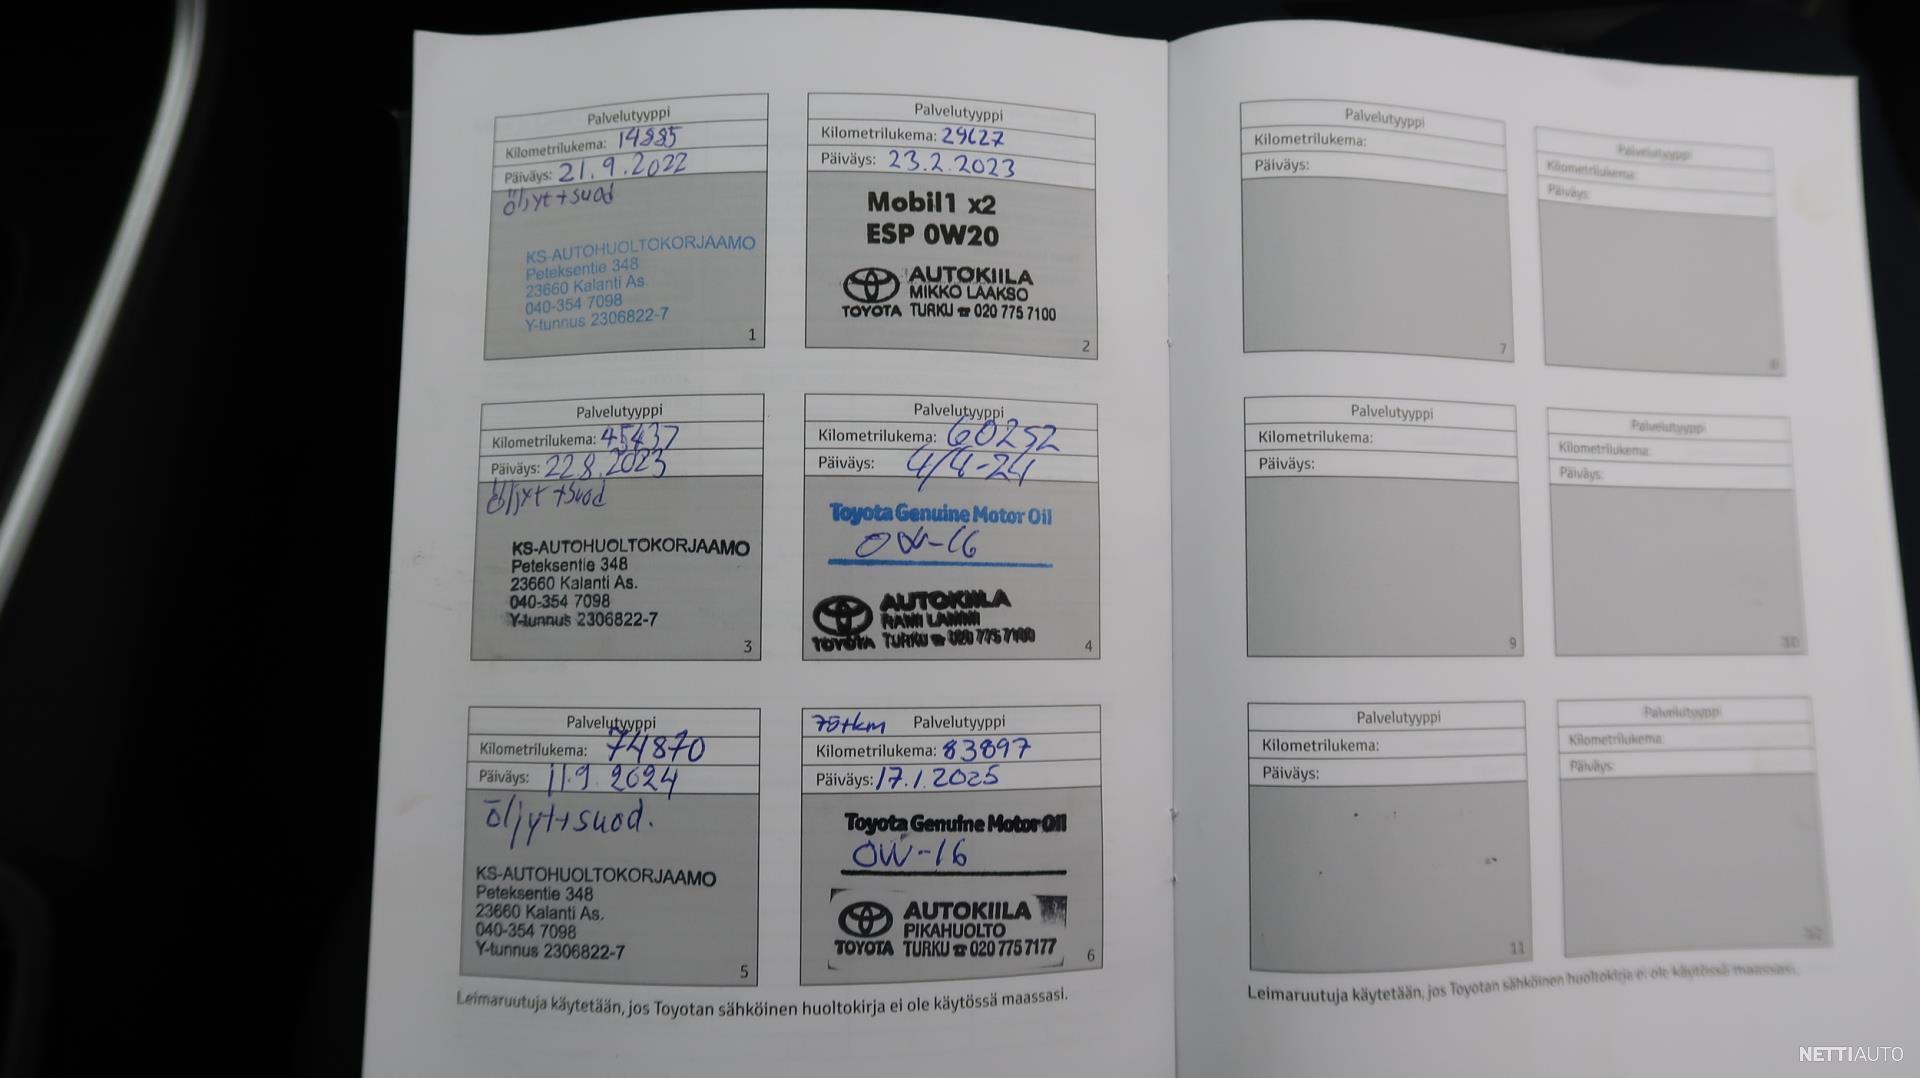 Palvelutyyppi
Kilometrilukema: 14885
Päiväys: 21.9.2022
öljyt+suod
KS-AUTOHUOLTOKORJAAMO
Peteksentie 348
23660 Kalanti As.
040-354 7098
Y-tunnus 2306822-7
1
Palvelutyyppi
Kilometrilukema: 29627
Päiväys: 23.2.2023
Mobil1 x2
ESP 0W20
AUTOKIILA
MIKKO LAAKSO
TOYOTA TURKU ☎ 020 775 7100
2
Palvelutyyppi
Kilometrilukema: 45437
Päiväys: 22.8.2023
öljyt +suod
KS-AUTOHUOLTOKORJAAMO
Peteksentie 348
23660 Kalanti As.
040-354 7098
Y-tunnus 2306822-7
3
Palvelutyyppi
Kilometrilukema: 60252
Päiväys: 4/4-24
Toyota Genuine Motor Oil
0W-16
AUTOKIILA
RAMI LAMMI
TOYOTA TURKU ☎ 020 775 7100
4
Palvelutyyppi
Kilometrilukema: 74870
Päiväys: 11.9.2024
öljyt+suod.
KS-AUTOHUOLTOKORJAAMO
Peteksentie 348
23660 Kalanti As.
040-354 7098
Y-tunnus 2306822-7
5
75tkm Palvelutyyppi
Kilometrilukema: 83897
Päiväys: 17.1.2025
Toyota Genuine Motor Oil
0W-16
AUTOKIILA
PIKAHUOLTO
TOYOTA TURKU ☎ 020 775 7177
6
Leimaruutuja käytetään, jos Toyotan sähköinen huoltokirja ei ole käytössä maassasi.
Palvelutyyppi
Kilometrilukema:
Päiväys:
7
Palvelutyyppi
Kilometrilukema:
Päiväys:
8
Palvelutyyppi
Kilometrilukema:
Päiväys:
9
Palvelutyyppi
Kilometrilukema:
Päiväys:
10
Palvelutyyppi
Kilometrilukema:
Päiväys:
11
Palvelutyyppi
Kilometrilukema:
Päiväys:
12
Leimaruutuja käytetään, jos Toyotan sähköinen huoltokirja ei ole käytössä maassasi.
NETTIAUTO